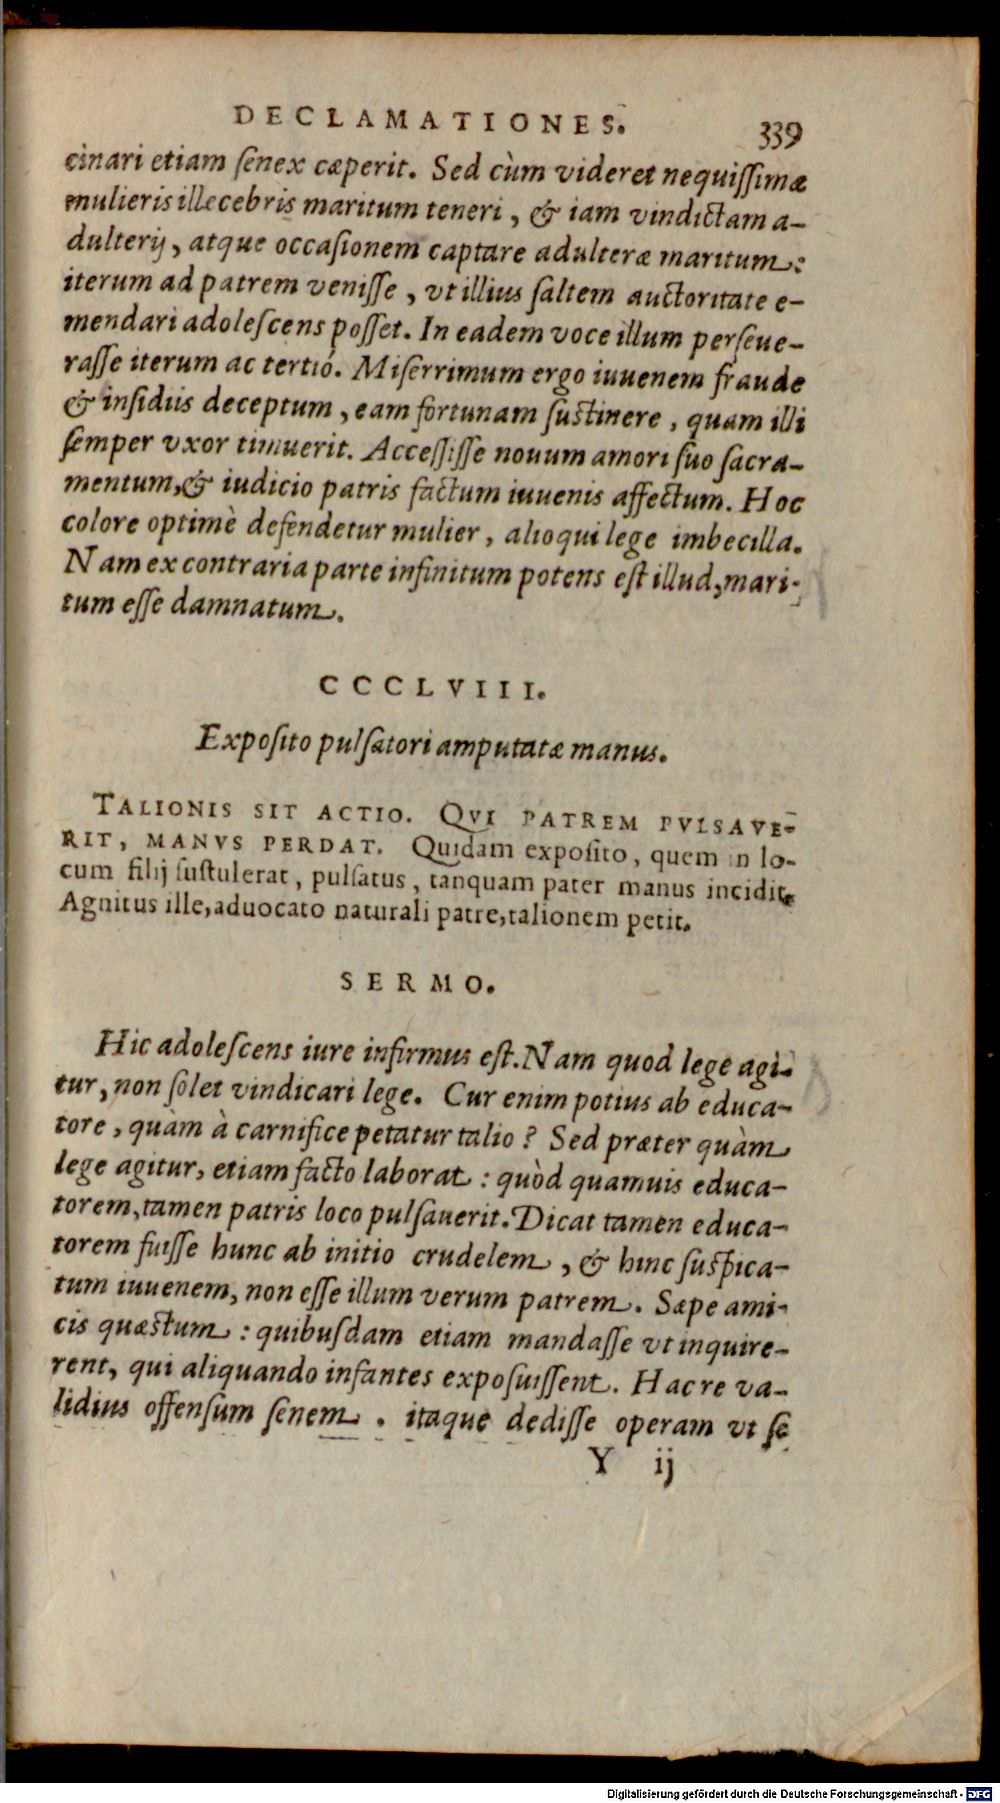 DECLAMATIONES. 339
cinari etiam ſenex cœperit. Sed cùm videret nequiſſimæ
mulieris illecebris maritum teneri, & iam vindictam a-
dulterij, atque occaſionem captare adulteræ maritum:
iterum ad patrem veniſſe, vt illius ſaltem auctoritate e-
mendari adoleſcens poſſet. In eadem voce illum perſeue-
raſſe iterum ac tertiò. Miſerrimum ergo iuuenem fraude
& inſidiis deceptum, eam fortunam ſuſtinere, quam illi
ſemper vxor timuerit. Acceſſiſſe nouum amori ſuo ſacra-
mentum,& iudicio patris factum iuuenis affectum. Hoc
colore optimè defendetur mulier, alioqui lege imbecilla.
Nam ex contraria parte infinitum potens eſt illud, mari-
tum eſſe damnatum.
CCCLVIII.
Expoſito pulſatori amputatæ manus.
TALIONIS SIT ACTIO. QVI PATREM PVLSAVE-
RIT, MANVS PERDAT. Quidam expoſito, quem in lo-
cum filij ſuſtulerat, pulſatus, tanquam pater manus incidit.
Agnitus ille, aduocato naturali patre, talionem petit.
SERMO.
Hic adoleſcens iure infirmus eſt. Nam quod lege agi-
tur, non ſolet vindicari lege. Cur enim potius ab educa-
tore, quàm à carnifice petatur talio? Sed præter quàm
lege agitur, etiam facto laborat: quòd quamuis educa-
torem, tamen patris loco pulſauerit. Dicat tamen educa-
torem fuiſſe hunc ab initio crudelem, & hinc ſuſpica-
tum iuuenem, non eſſe illum verum patrem. Sæpe ami-
cis quæſtum: quibuſdam etiam mandaſſe vt inquire-
rent, qui aliquando infantes expoſuiſſent. Hac re va-
lidius offenſum ſenem. itaque dediſſe operam vt ſe
Y ij
Digitalisierung gefördert durch die Deutsche Forschungsgemeinschaft - DFG